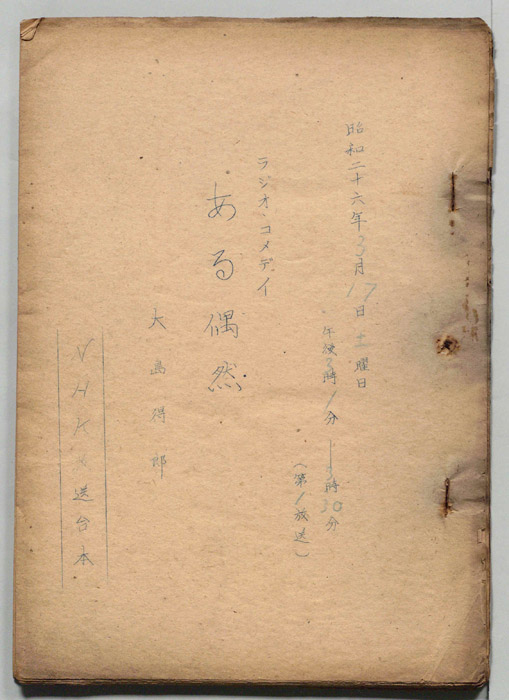 昭和二十六年3月17日土曜日
午後3時1分―3時30分
(第1放送)
ラジオ・コメデイ
ある偶然
大島得郎
NHK放送台本